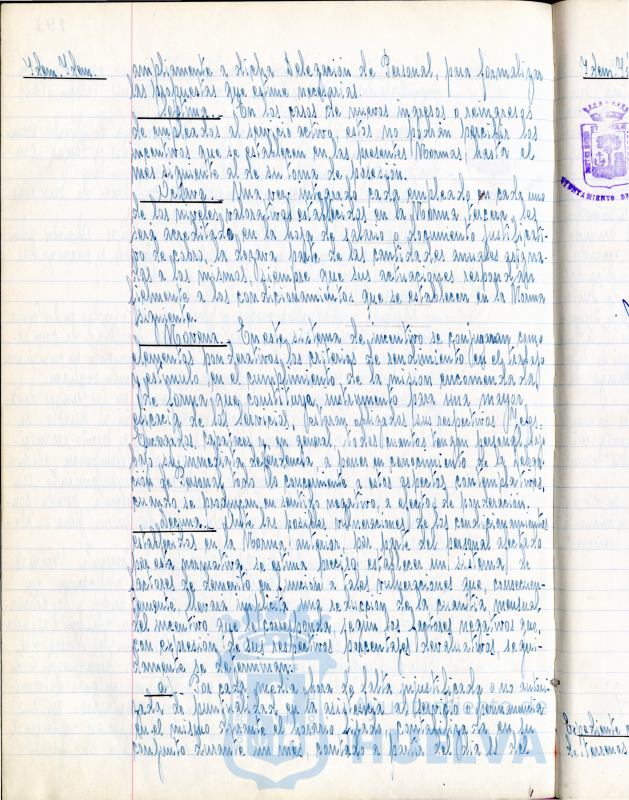 Idem. Idem.
ampliamente a dicha Delegación de Personal, para formalizar
las propuestas que estime necesarias.
Séptima.- En los casos de nuevos ingresos o reingresos
de empleados al servicio activo, estos no podrán percibir los
incentivos que se establecen en las presentes Normas, hasta el
mes siguiente al de su toma de posesión.
Octava.- Una vez integrado cada empleado en cada uno
de los niveles valorativos establecidos en la Norma tercera les
será acreditado en la hoja de salario o documento justificati-
vo de cobro, la dozava parte de las cantidades anuales asigna-
das a los mismos, siempre que sus actuaciones respondan
fielmente a los condicionamientos que se establecen en la Norma
siguiente.
Novena.- En este sistema de incentivo se configuran como
elementos ponderativos los criterios de rendimiento en el trabajo
y estímulo en el cumplimiento de la misión encomendada,
de forma que constituya instrumento para una mayor
eficacia de los servicios, estarán obligados sus respectivos Jefes,
Encargados, Capataces y, en general, todos cuantos tengan personal ba-
jo su inmediata dependencia, a poner en conocimiento de la Delega-
ción de Personal todo lo concerniente a estos aspectos contemplativos,
cuando se produzcan en sentido negativo, a efectos de ponderación.
Décima.- Ante las posibles vulneraciones de los condicionamientos
establecidos en la Norma anterior por parte del personal afectado
por esta normativa, se estima preciso establecer un sistema de
factores de demérito en función a tales vulneraciones que, consecuen-
temente, llevará implícita una reducción de la cuantía mensual
del incentivo que le corresponda, según los factores negativos que,
con expresión de sus respectivos porcentajes devaluativos, segui-
damente se determinan:
a) Por cada media hora de falta injustificada o no autori-
zada de puntualidad en la asistencia al servicio o permanencia
en el mismo durante el horario fijado, contabilizada en su
conjunto durante un mes, contado a partir del día 25 del
HUELVA
AYUNTAMIENTO DE
Expediente
de terrenos